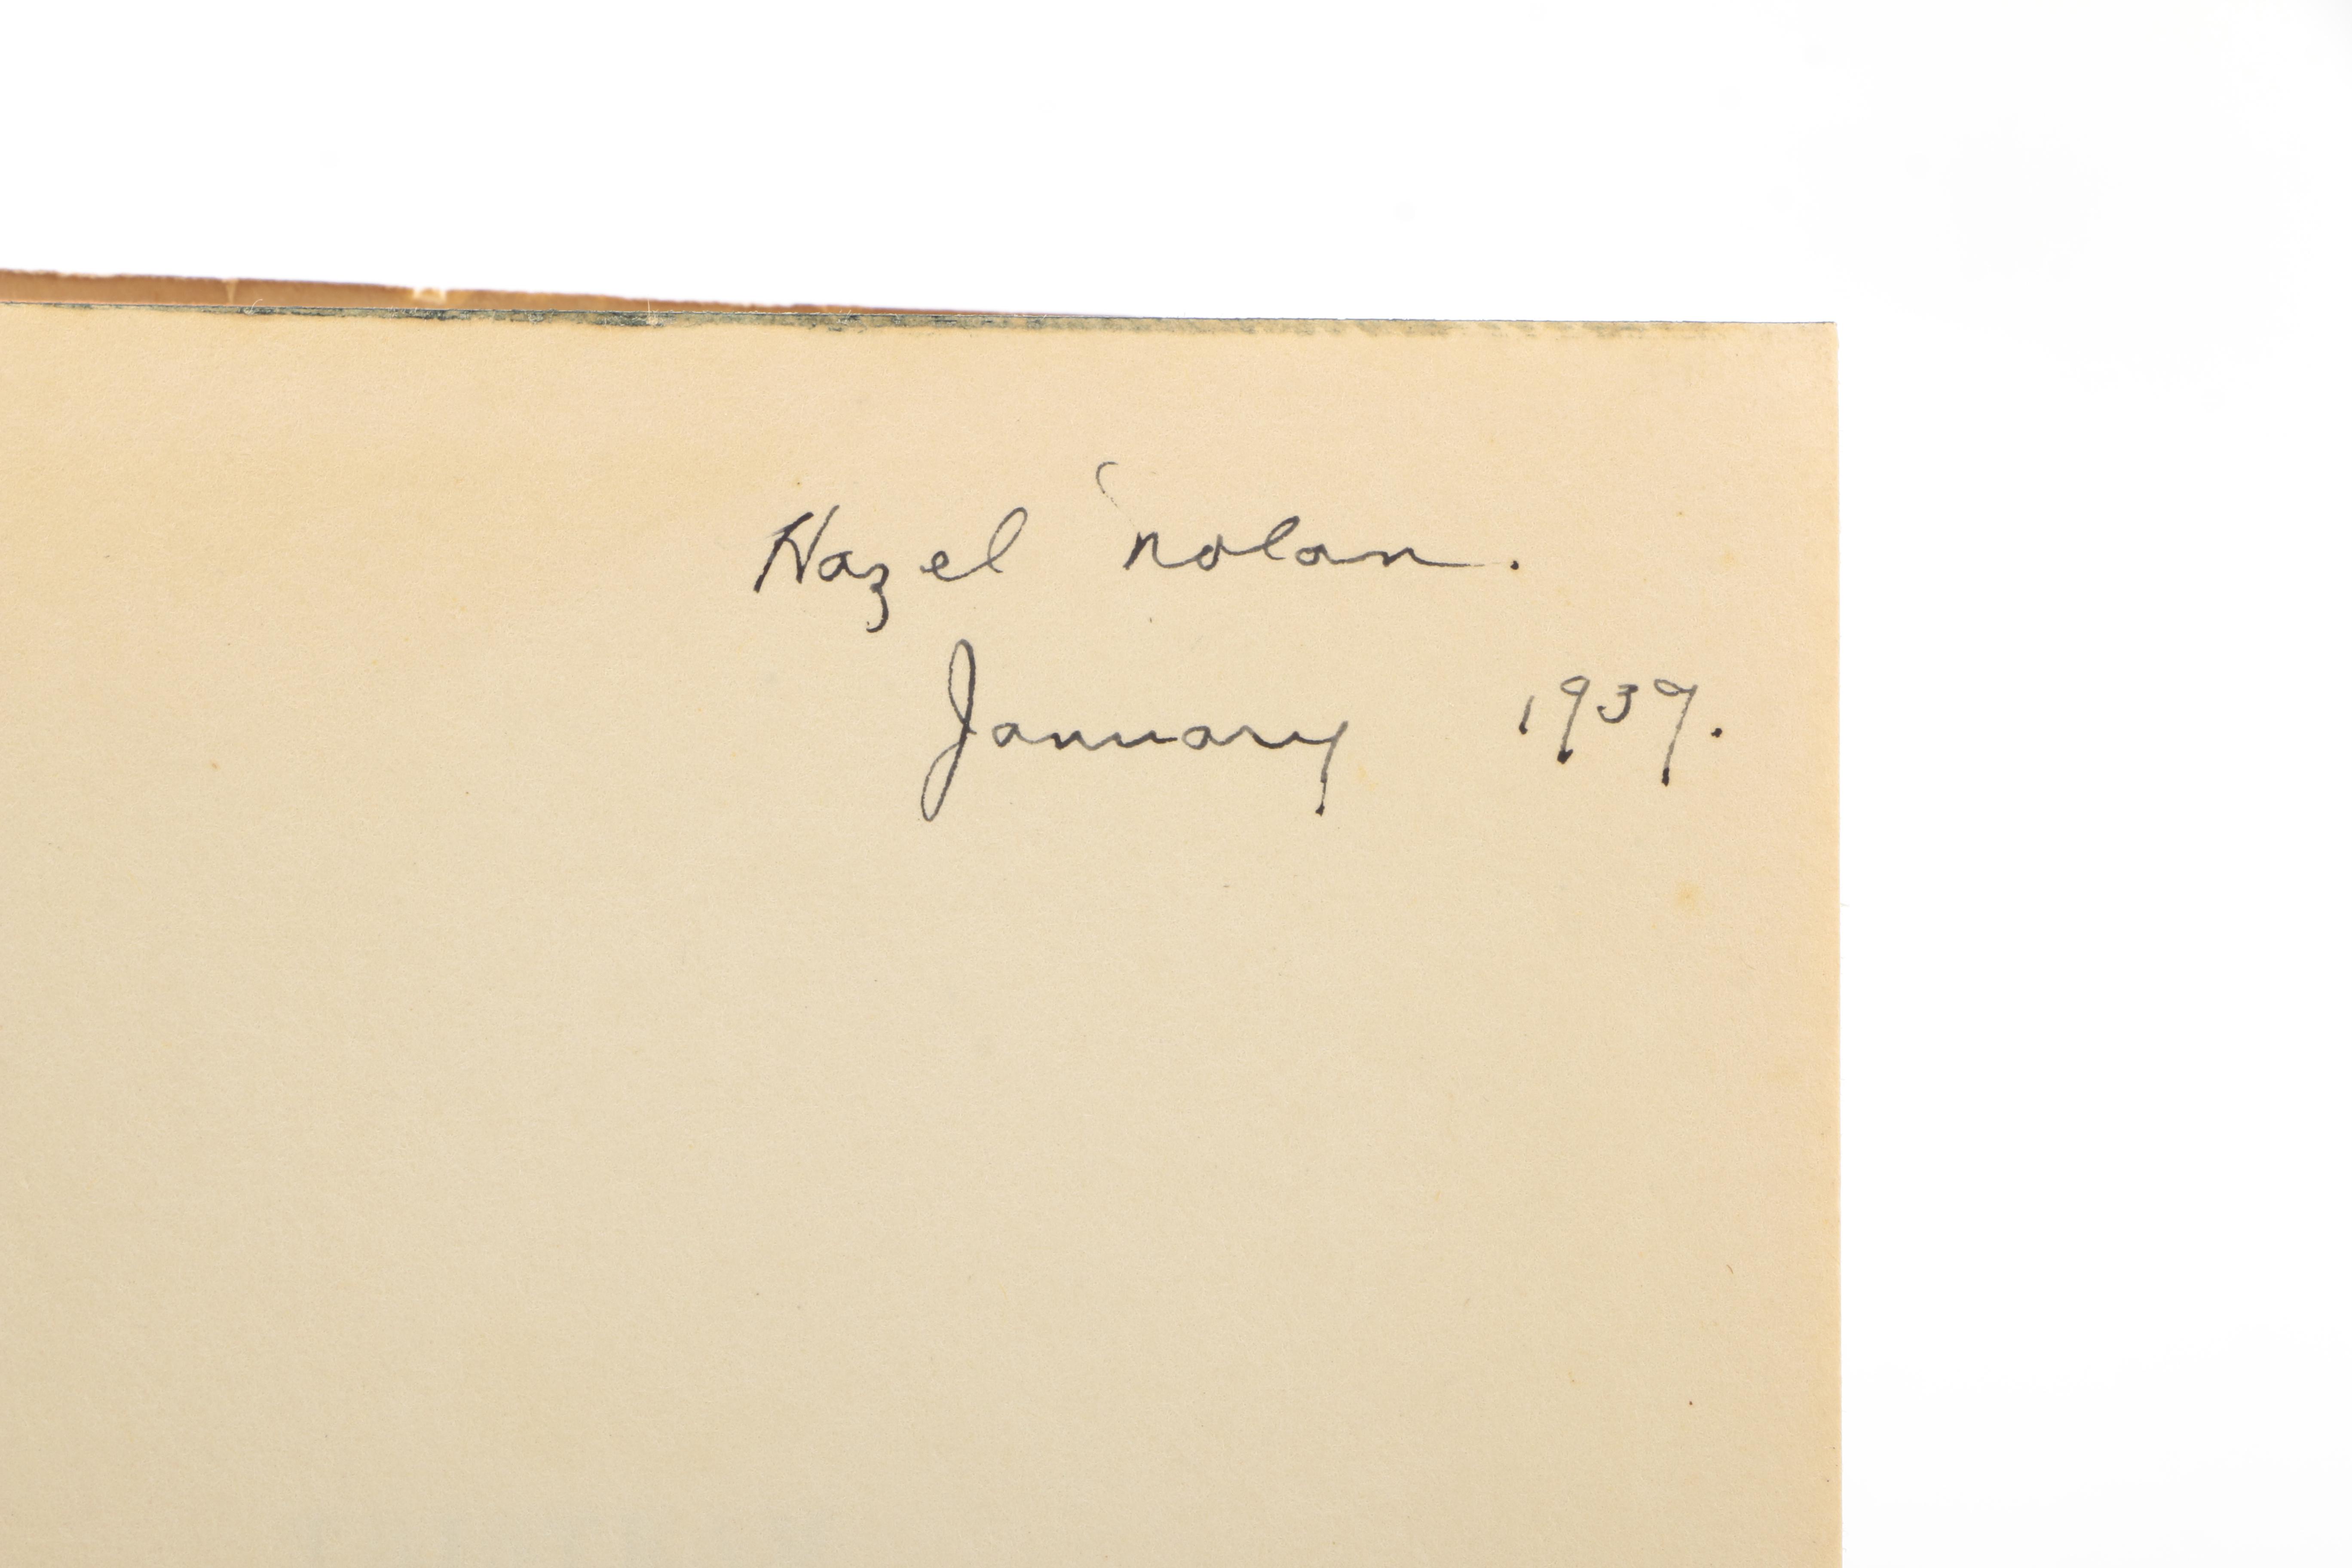 Hazel Nolan.
January 1937.